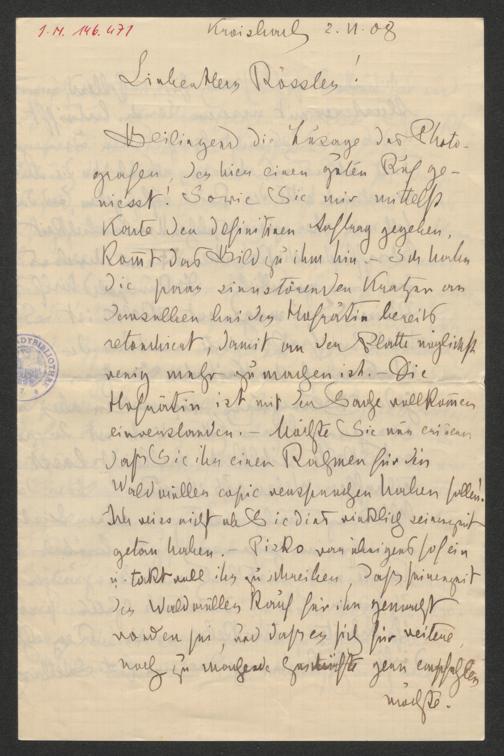 I.N. 146.471
Kroisbach 2.VI.08
Lieber Herr Rössler!
Beiliegend die Zusage des Photo-
grafen, der hier einen guten Ruf ge-
niesst! Sowie Sie mir mittelst
Karte den definitiven Auftrag gegeben,
komt das Bild zu ihm hin. – Ich habe
die paar sinnstörenden Kratzer an
demselben bei der Hofrätin bereits
retouchiert, damit an der Platte möglichst
wenig mehr zu machen ist. – Die
Hofrätin ist mit der Sache vollkomen
einverstanden. – Möchte Sie nur
daß Sie ihr einen Rahmen für die
Waldmüller copie versprochen haben sollen!
Ich weiss nicht ob Sie dies wirklich seinerzeit
getan haben. – Pisko war übrigens so fein
u. taktvoll ihr zu schreiben, dass seinerzeit
der Waldmüller Kauf für ihn gemacht
worden sei, und dass er sich für weitere
noch zu machende Geschäfte gern empfehlen
möchte.